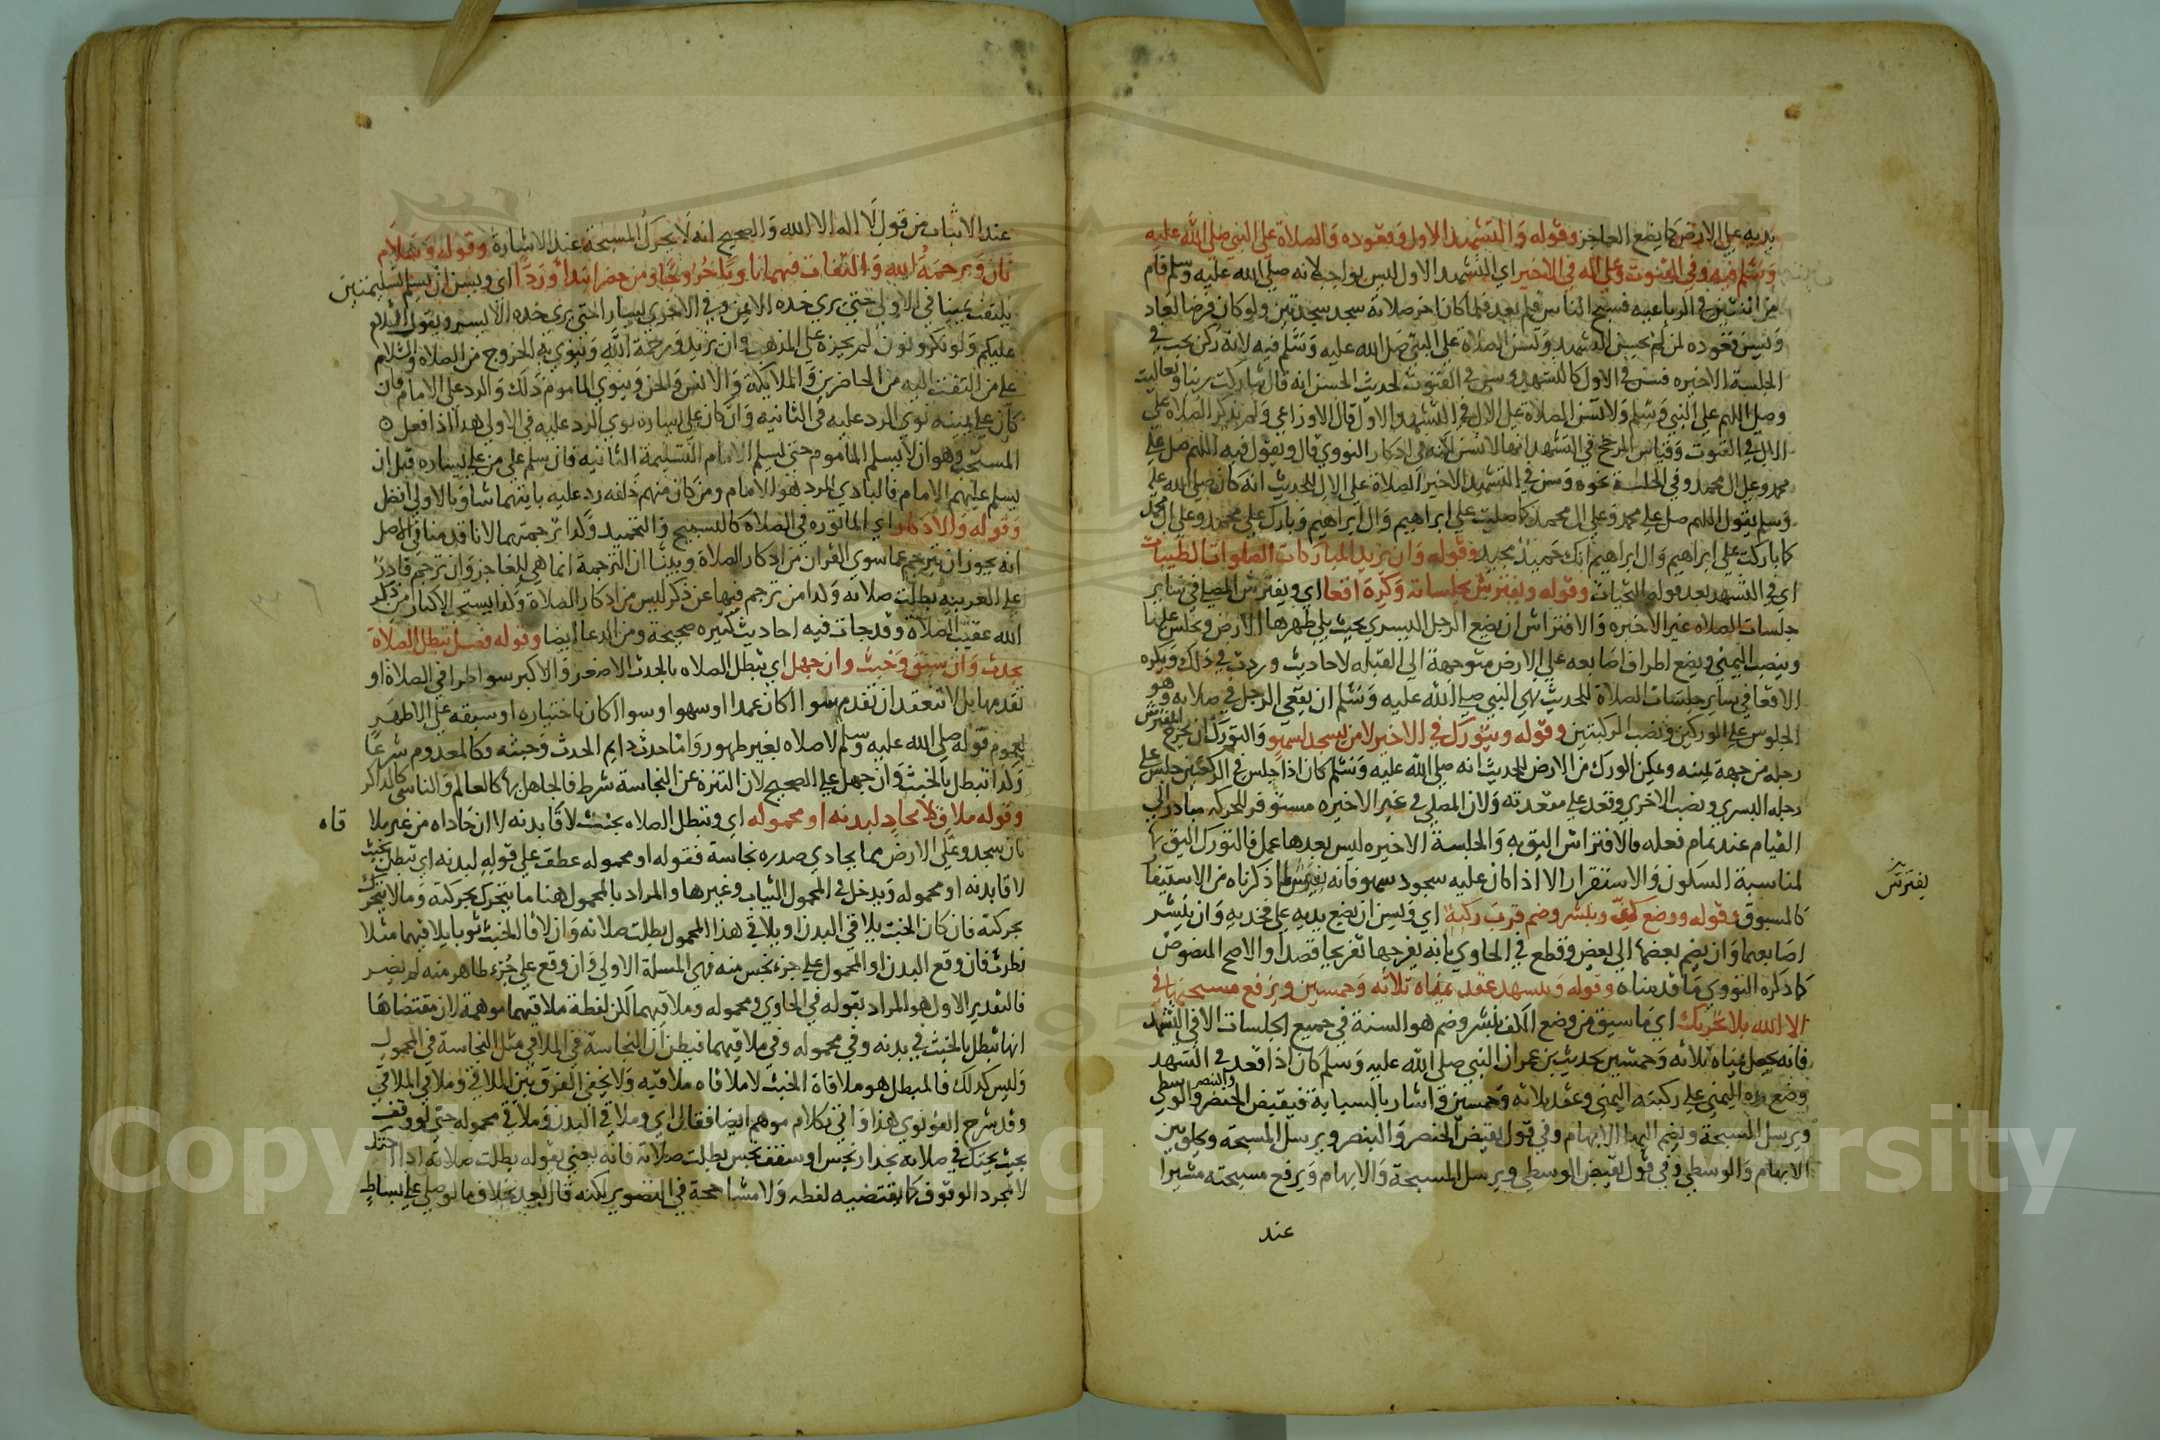 يديه علي الارض كما يضع العاجز وقوله والتشهد الاول وقعوده والصلاة علي النبي صلي الله عليه
وسلم فيه وفي القنوت وعلي اله في الاخير اي التشهد الاول ليس بواجب لانه صلي الله عليه وسلم قام
من اثنتين في الرباعيه فسبح الناس فلم يعد فلما كان اخر صلاته سجد سجدتين ولو كان فرضا لعاد
ويسن قعوده لمن لم يحسن التشهد وتسن الصلاة علي النبي صلي الله عليه وسلم فيه لانه ركن يجب في
الجلسة الاخيره فسن في الاول كالتشهد وسن في القنوت لحديث الحسن انه قال تباركت ربنا وتعاليت
وصل اللهم علي النبي وسلم ولا تسن الصلاة علي الال في التشهد الاول قال الاوزاعي ولم يذكر الصلاة علي
الال في القنوت وقياس المرجح في التشهد انها لا تسن لكنه في اذكار النووي قال ويقول فيه اللهم صل علي
محمد وعلي ال محمد وفي نحوه وسن في التشهد الاخير الصلاة علي الال للحديث انه كان صلي الله عليه
وسلم يقول اللهم صل علي محمد وعلي ال محمد كما صليت علي ابراهيم وال ابراهيم وبارك علي محمد وعلي ال محمد
كما باركت علي ابراهيم وال ابراهيم انك حميد مجيد وقوله وان يزيد المباركات الصلوات الطيبات
اي في التشهد بعد قوله التحيات وقوله ويفترش بجلساته وكره اقعا اي ويفترش المصلي في سائر
جلسات الصلاه غير الاخيره والافتراش ان يضع الرجل اليسري بحيث يلي ظهرها الارض ويجلس عليها
وينصب اليمني ويضع اطراف اصابعه علي الارض متوجهة الي القبله لاحاديث وردت في ذلك ويكره
الاقعا في ساير جلسات الصلاة لحديث نهي النبي صلي الله عليه وسلم ان يقعي الرجل في صلاته وهو
الجلوس علي الوركين ونصب الركبتين وقوله ويتورك في الاخير لا من يسجد لسهو والتورك ان يخرج المفترش
رجله من جهة يمينه ويمكن الورك من الارض للحديث انه صلي الله عليه وسلم كان اذا جلس في الركعتين جلس علي
رجله اليسري ونصب الاخري وقعد علي مقعدته ولان المصلي في غير الاخيره مستوفز للحركه مبادر الي
القيام عند تمام فعله فالافتراش اليق به والجلسة الاخيره ليس بعدها عمل فالتورك اليق بها
لمناسبة السكون والاستقرار الا اذا كان عليه سجود سهو فانه يفترش لما ذكرناه من الاستيفا
يفترش
كالمسبوق وقوله ووضع كف وبنشر وضم قرب ركبة اي ويسن ان يضع يديه علي فخذيه وان ينشر
اصابعهما وان يضم بعضها الي بعض وقطع في الحاوي بانه يفرجها تفريجا قصدا والاصح المنصوص
كما ذكره النووي ما قدمناه وقوله وبتشهد عقد يمناه ثلاثه وخمسين ويرفع مسبحتها في
الا الله بلا تحريك اي ما سبق من وضع الكف بنشر وضم هو السنة في جميع الجلسات الا في التشهد
فانه يجعل يمناه ثلاثه وخمسين لحديث بن عمر ان النبي صلي الله عليه وسلم كان اذا قعد في التشهد
وضع يده اليمني علي ركبته اليمني وعقد ثلاثه وخمسين واشار بالسبابة فيقبض الخنصر والبنصر والوسطي
ويرسل المسبحة ويضم اليها الابهام وفي قول يقبض الخنصر والبنصر ويرسل المسبحة ويحلق بين
الابهام والوسطي وفي قول يقبض الوسطي ويرسل المسبحة والابهام ويرفع مسبحته مشيرا
عند
عند الاثبات من قول لا اله الا الله والصحيح انه لا يحرك المسبحة عند الاشارة وقوله وسلام
ثان ورحمة الله والتفات فيهما نا خروجا ومن حضر ابتدا وردا اي ويسن ان يسلم تسليمتين
يلتفت يمينا في الاولي حتي يري خده الايمن وفي الاخري يسارا حتي يري خده الايسر ويقول السلام
عليكم ولو نكر ونون لم يجزه علي المذهب وان يزيد ورحمة الله وينوي به الخروج من الصلاة والسلام
علي من التفت اليه من الحاضرين والملايكة والانس والجن وينوي الماموم ذلك والرد علي الامام فان
كان علي يمينه نوي الرد عليه في الثانيه وان كان علي يساره نوي الرد عليه في الاولي هذا اذا فعل
المستحب وهو ان لا يسلم الماموم حتي يسلم الامام التسليمة الثانيه فان سلم علي من علي يساره قبل ان
يسلم عليهم الامام فالبادي الرد هو الامام ومن كان منهم خلفه رد عليه بايتهما شا وبالاولي افضل
وقوله والاذكار اي الماثوره في الصلاة كالتسبيح والتحميد وكذا ترجمتهما لانا قدمنا في الاصل
انه يجوز ان يترجم عما سوي القران من اذكار الصلاة وبينا ان الترجمة انما هي للعاجز وان ترجم قادر
علي العربيه بطلت صلاته وكذا من ترجم فيها عن ذكر ليس من اذكار الصلاة وكذا يستحب الاكثار من ذكر
الله عقيب الصلاة وقد جات فيه احاديث كثيره صحيحة ومن الدعا ايضا وقوله فصل تبطل الصلاة
بحدث وان سبق وخبث وان جهل اي تبطل الصلاه بالحدث الاصغر والاكبر سوا طرا في الصلاة او
تقدمها بل لا تنعقد ان تقدم سوا اكان عمدا او سهوا وسوا اكان باختياره او سبقه علي الاظهر
لعموم قوله صلي الله عليه وسلم لا صلاه بغير طهور واما حدث دايم الحدث وخبثه فكالمعدوم شرعا
وكذا تبطل بالخبث وان جهل علي الصحيح لان التنزه عن النجاسة شرط فالجاهل بها كالعالم والناسي كالذاكر
وقوله ملاق لا محاد لبدنه او محموله اي وتبطل الصلاه بخبث لاقا بدنه لا ان حاذاه من غير ملا
قاه
بان سجد وعلي الارض مما يحاذي صدره نجاسة فقوله او محموله عطف علي قوله لبدنه اي تبطل بخبث
لاقا بدنه او محموله ويدخل في المحمول الثياب وغيرها والمراد بالمحمول هنا ما يتحرك بحركته وما لا يتحرك
بحركته فان كان الخبث يلاقي البدن او يلاقي هذا المحمول بطلت صلاته وان لاقا الخبث ثوبا يلاقيهما مثلا
نظرت فان وقع البدن او المحمول علي جزء نجس منه فهي المسلة الاولي وان وقع علي جزء طاهر منه لم يضر
فالتقدير الاول هو المراد بقوله في الحاوي ومحموله وملاقيهما لكن لفظة ملاقيهما موهمة لان مقتضاها
انها تبطل بالخبث في بدنه وفي محموله وفي ملاقيهما فيظن ان النجاسة في الملاقي مثل النجاسة في المحمول
وليس كذلك فالمبطل هو ملاقاة الخبث لا ملاقاه ملاقيه ولا يخفي الفرق بين الملاقي وملاقي الملاقي
وقد شرح القونوي هذا وافي بكلام موهم ايضا فقال اي وملاقي البدن وملاقي محموله حتي لو وقف
بحيث يحتك في صلاته بجدار نجس او سقف نجس بطلت صلاته فانه يعني بقوله بطلت صلاته اذا احتك
لا بمجرد الوقوف كما يقتضيه لفظه ولا مشاححة في التصوير لكنه قال بعد بخلاف ما لو صلي علي بساط